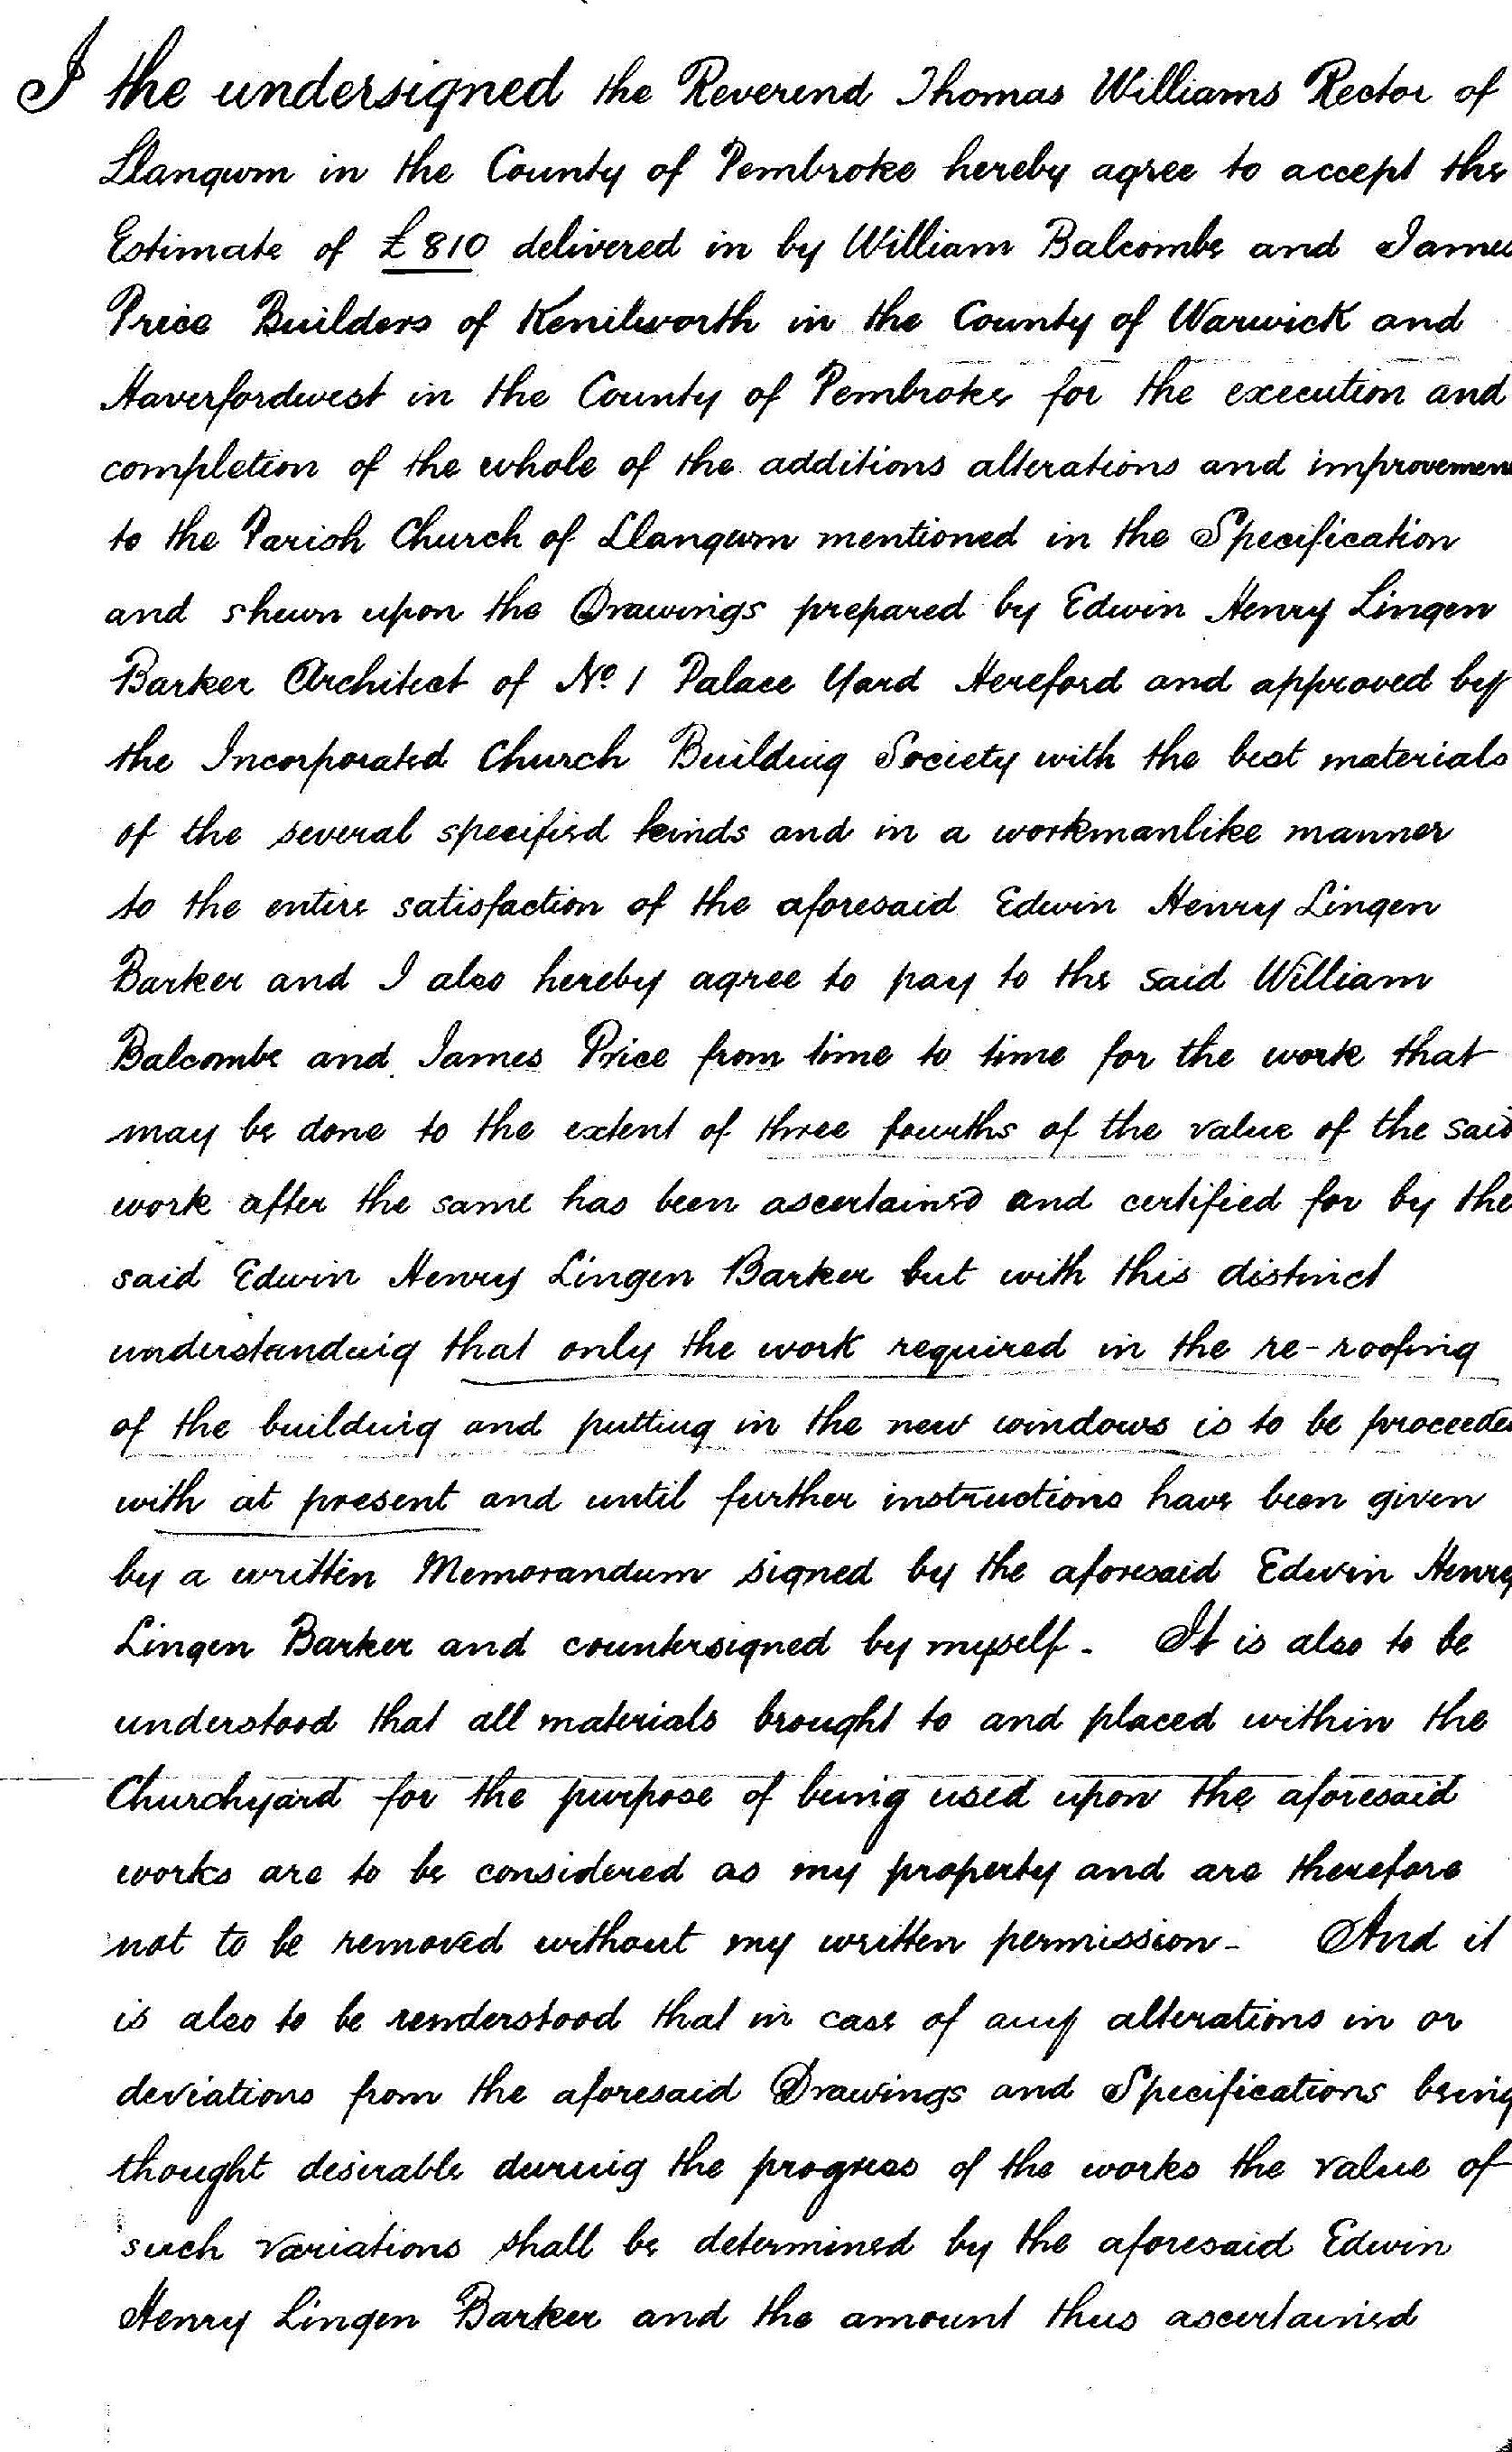 I the undersigned the Reverend Thomas Williams Rector of
Llangwm in the County of Pembroke hereby agree to accept the
Estimate of £810 delivered in by William Balcombe and James
Price Builders of Kenilworth in the County of Warwick and
Haverfordwest in the County of Pembroke for the execution and
completion of the whole of the additions alterations and improvemen
to the Parish Church of Llangwm mentioned in the Specification
and shewn upon the Drawings prepared by Edwin Henry Lingen
Barker Architect of No. 1 Palace Yard Hereford and approved by
the Incorporated Church Building Society with the best materials
of the several specified kinds and in a workmanlike manner
to the entire satisfaction of the aforesaid Edwin Henry Lingen
Barker and I also hereby agree to pay to the said William
Balcombe and James Price from time to time for the work that
may be done to the extent of three fourths of the value of the said
work after the same has been ascertained and certified for by the
said Edwin Henry Lingen Barker but with this distinct
understanding that only the work required in the re-roofing
of the building and putting in the new windows is to be proceeded
with at present and until further instructions have been given
by a written Memorandum signed by the aforesaid Edwin Henry
Lingen Barker and countersigned by myself - It is also to be
understood that all materials brought to and placed within the
Churchyard for the purpose of being used upon the aforesaid
works are to be considered as my property and are therefore
not to be removed without my written permission - And it
is also to be understood that in case of any alterations in or
deviations from the aforesaid Drawings and Specifications being
thought desirable during the progress of the works the value of
such variations shall be determined by the aforesaid Edwin
Henry Lingen Barker and the amount thus ascertained